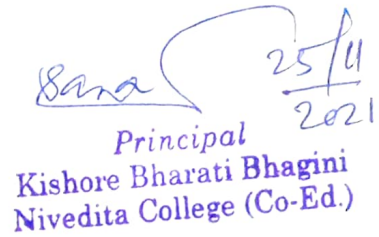 25/11
2021
Principal
Kishore Bharati Bhagini
Nivedita College (Co-Ed.)